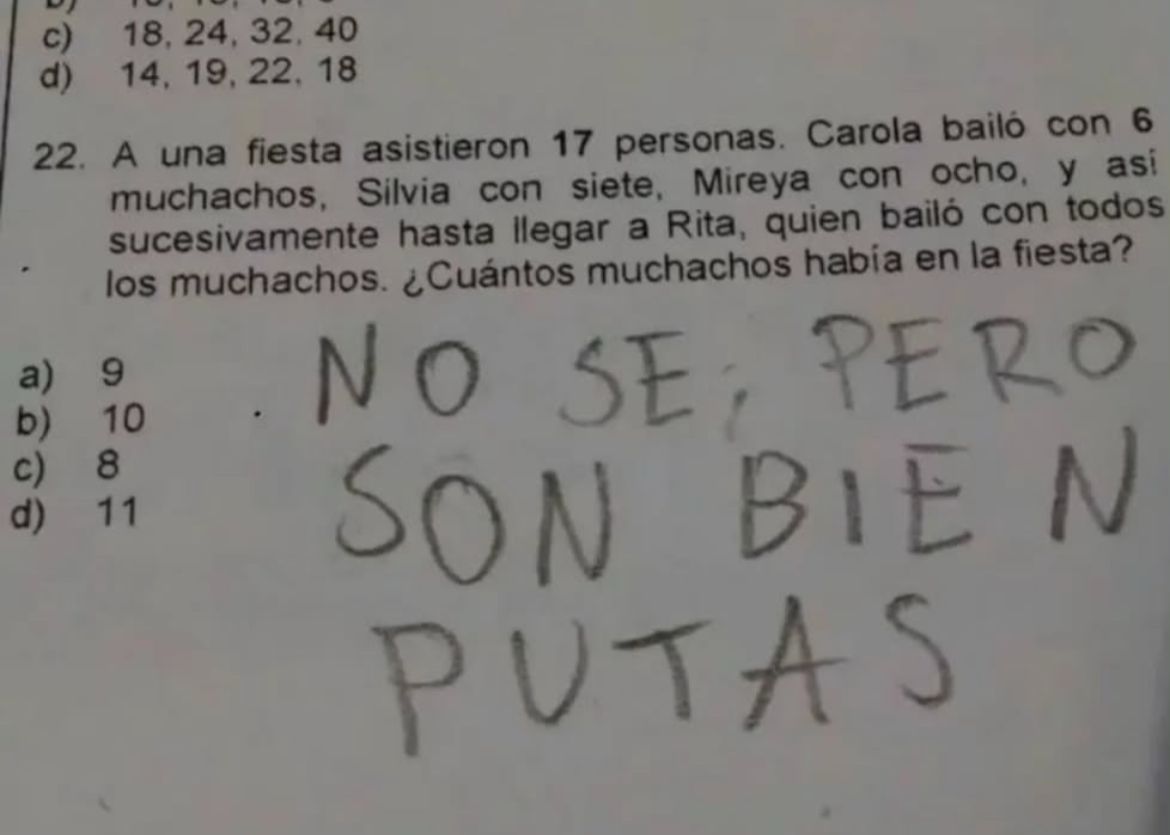 c) 18, 24, 32, 40
d) 14, 19, 22, 18
22. A una fiesta asistieron 17 personas. Carola bailó con 6
muchachos, Silvia con siete, Mireya con ocho, y así
sucesivamente hasta llegar a Rita, quien bailó con todos
los muchachos. ¿Cuántos muchachos había en la fiesta?
a) 9
b) 10
c) 8
d) 11
NO SE, PERO
SON BIEN
PUTAS